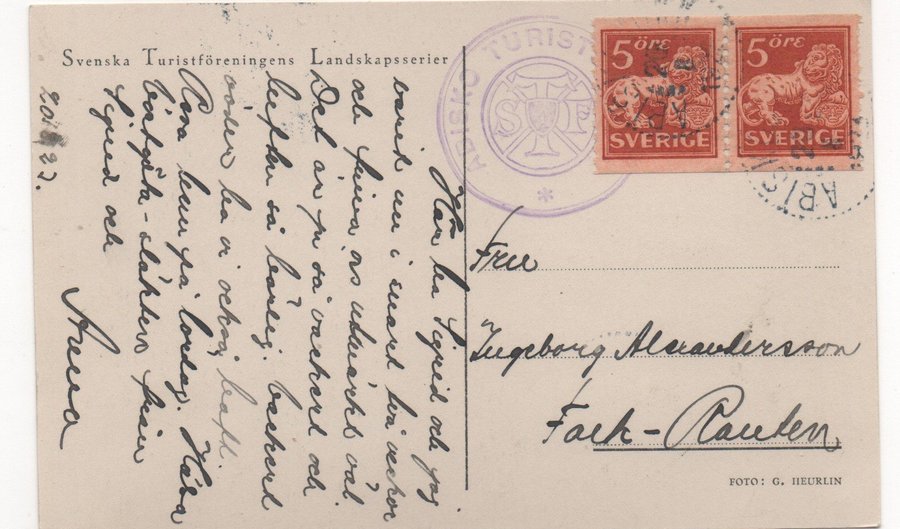 Svenska Turistföreningens Landskapsserier
ABISKO TURIST
STF
5 öre
SVERIGE
5 öre
SVERIGE
ABIS
20/8 22.
Här ha Sigrid och jag
varit nu i snart två veckor
och funnit oss utmärkt väl.
Det är ju så vackert och
luften så härlig. Vackert
väder ha vi också haft.
Resa hem på lördag. Hälsa
släkten från
Sigrid och
Anna
Fru
Ingeborg Alexandersson
Fack - Ranten
FOTO: G. HEURLIN